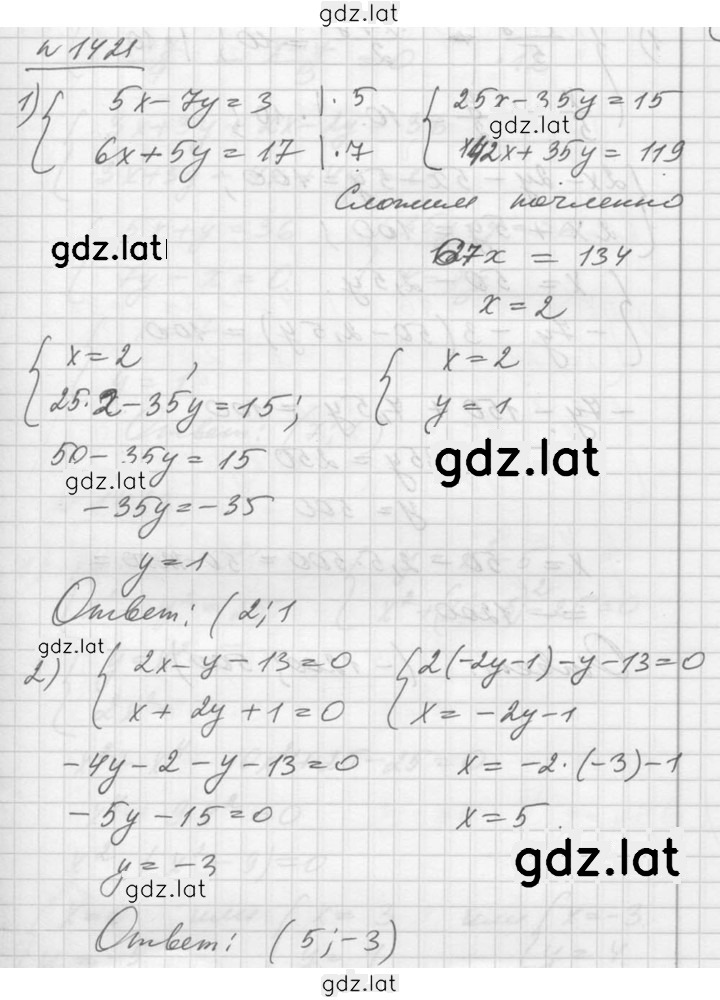 gdz.lat
n 1421
1) { 5x-7y=3 |·5 { 25x-35y=15
gdz.lat
6x+5y=17 |·7 42x+35y=119
Сложим почленно
gdz.lat
67x = 134
x=2
{ x=2 , { x=2
25·2-35y=15; y=1
50-35y=15
gdz.lat
gdz.lat
-35y=-35
y=1
Ответ: (2;1
gdz.lat
2) { 2x-y-13=0 { 2(-2y-1)-y-13=0
x+2y+1=0 x=-2y-1
-4y-2-y-13=0 x=-2·(-3)-1
-5y-15=0 x=5.
y=-3
gdz.lat
gdz.lat
Ответ: (5;-3)
gdz.lat